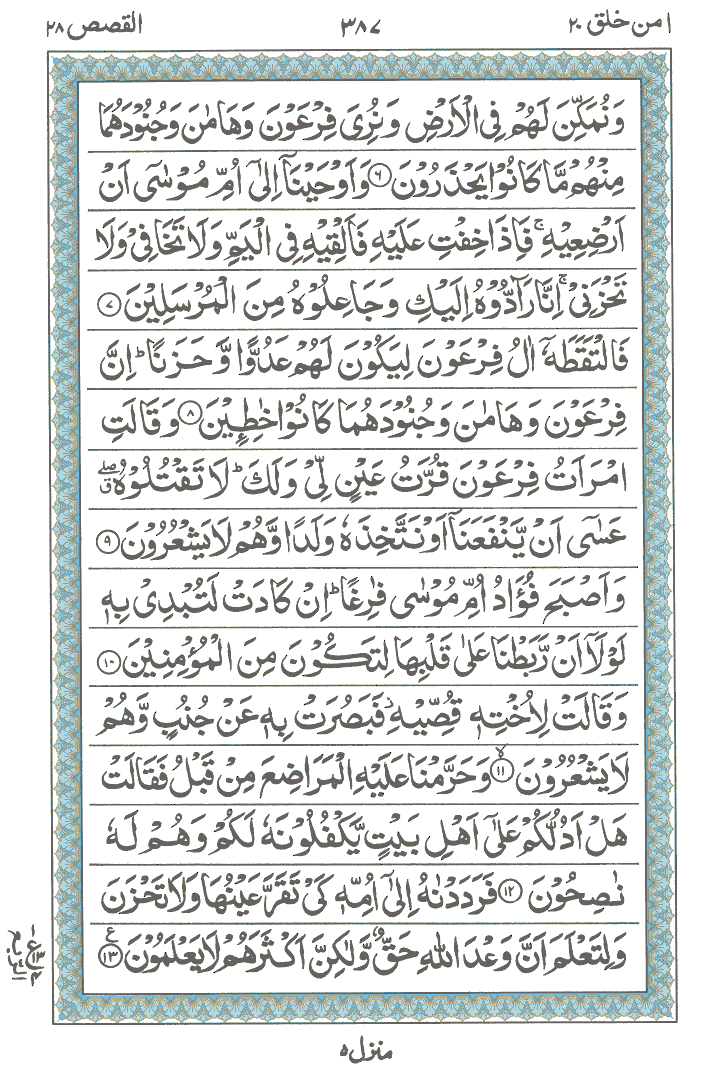 امن خلق ٢٠ ٣٨٧ القصص ٢٨
وَنُمَكِّنَ لَهُمْ فِى الْاَرْضِ وَنُرِىَ فِرْعَوْنَ وَهَامٰنَ وَجُنُوْدَهُمَا
مِنْهُمْ مَّا كَانُوْا يَحْذَرُوْنَ ۝٦ وَاَوْحَيْنَآ اِلٰٓى اُمِّ مُوْسٰٓى اَنْ
اَرْضِعِيْهِ ۚ فَاِذَا خِفْتِ عَلَيْهِ فَاَلْقِيْهِ فِى الْيَمِّ وَلَا تَخَافِىْ وَلَا
تَحْزَنِىْ ۚ اِنَّا رَآدُّوْهُ اِلَيْكِ وَجَاعِلُوْهُ مِنَ الْمُرْسَلِيْنَ ۝٧
فَالْتَقَطَهٗٓ اٰلُ فِرْعَوْنَ لِيَكُوْنَ لَهُمْ عَدُوًّا وَّحَزَنًا ؕ اِنَّ
فِرْعَوْنَ وَهَامٰنَ وَجُنُوْدَهُمَا كَانُوْا خٰطِـِٕيْنَ ۝٨ وَقَالَتِ
امْرَاَتُ فِرْعَوْنَ قُرَّتُ عَيْنٍ لِّىْ وَلَكَ ؕ لَا تَقْتُلُوْهُ ۖق
عَسٰٓى اَنْ يَّنْفَعَنَآ اَوْ نَتَّخِذَهٗ وَلَدًا وَّهُمْ لَا يَشْعُرُوْنَ ۝٩
وَاَصْبَحَ فُؤَادُ اُمِّ مُوْسٰى فٰرِغًا ؕ اِنْ كَادَتْ لَتُبْدِىْ بِهٖ
لَوْلَآ اَنْ رَّبَطْنَا عَلٰى قَلْبِهَا لِتَكُوْنَ مِنَ الْمُؤْمِنِيْنَ ۝١٠
وَقَالَتْ لِاُخْتِهٖ قُصِّيْهِ ؗ فَبَصُرَتْ بِهٖ عَنْ جُنُبٍ وَّهُمْ
لَا يَشْعُرُوْنَ ۝١١ۙ وَحَرَّمْنَا عَلَيْهِ الْمَرَاضِعَ مِنْ قَبْلُ فَقَالَتْ
هَلْ اَدُلُّكُمْ عَلٰٓى اَهْلِ بَيْتٍ يَّكْفُلُوْنَهٗ لَكُمْ وَهُمْ لَهٗ
نٰصِحُوْنَ ۝١٢ فَرَدَدْنٰهُ اِلٰٓى اُمِّهٖ كَىْ تَقَرَّ عَيْنُهَا وَلَا تَحْزَنَ
وَلِتَعْلَمَ اَنَّ وَعْدَ اللّٰهِ حَقٌّ وَّلٰكِنَّ اَكْثَرَهُمْ لَا يَعْلَمُوْنَ ۝١٣ ع
منزل ٥